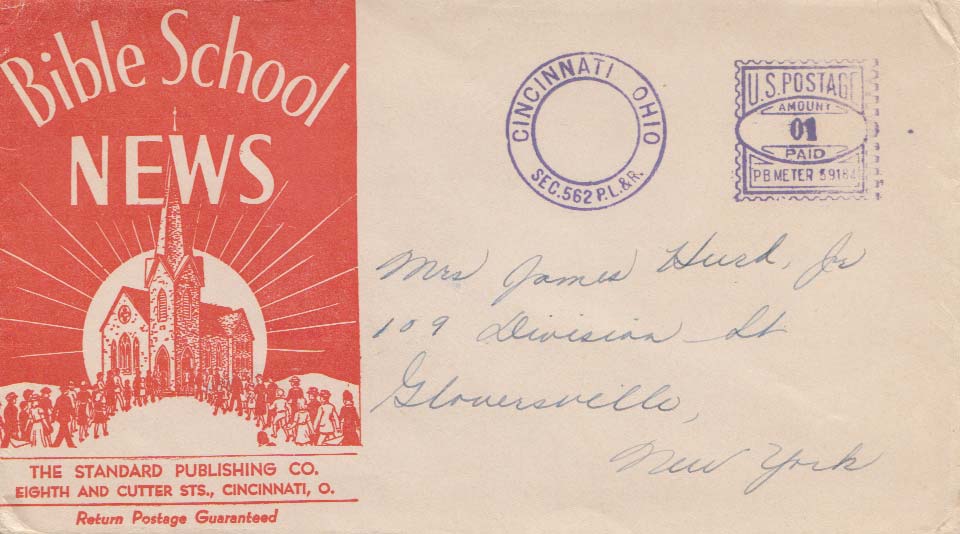 Bible School
NEWS
THE STANDARD PUBLISHING CO.
EIGHTH AND CUTTER STS., CINCINNATI, O.
Return Postage Guaranteed
CINCINNATI OHIO
SEC.562 P.L.&R.
U.S.POSTAGE
AMOUNT
01
PAID
PB METER 59184
Mrs James Hurd, Jr
109 Division St
Gloversville,
New York